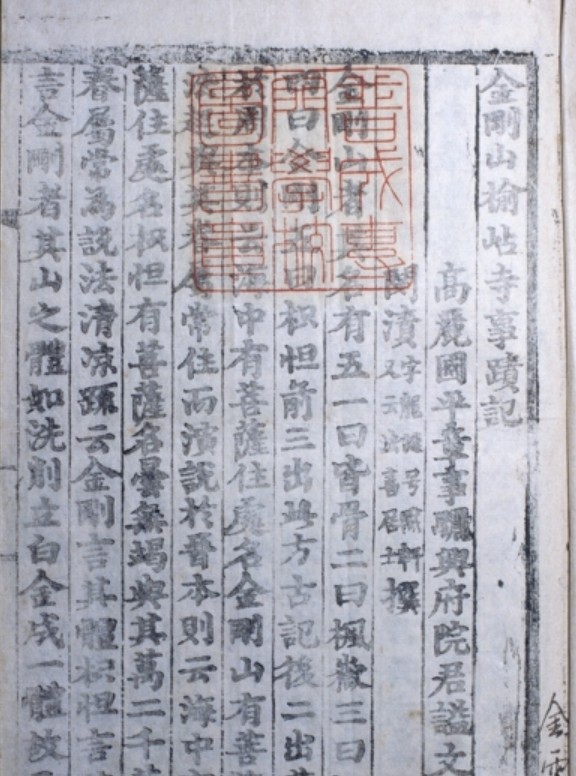 金剛山榆岾寺事蹟記
高麗國平章事驪興府院君謚文
閔漬 字龍涎号默軒 又云法喜居士 撰
金剛山者其名有五一曰皆骨二曰楓嶽三曰
曰金剛 曰枳怛前三出此方古記後二出
則云海中有菩薩住處名金剛山有菩
常住而演說於晉本則云海中
薩住處名枳怛有菩薩名曇無竭與其萬二千
眷屬常為說法清凉䟽云金剛言其體枳怛言
言金剛者其山之體如洗削立白金成一體故
金